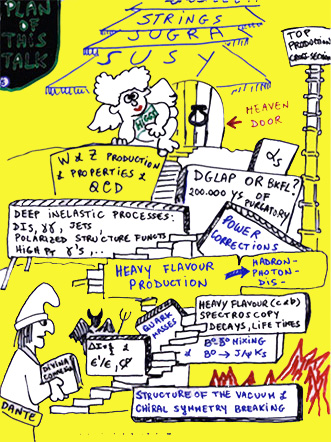 PLAN
OF
THIS
TALK
STRINGS
SUGRA
SUSY
TOP
PRODUCTION
CROSS-SECTION
HIGGS
HEAVEN
DOOR
W & Z PRODUCTION
& PROPERTIES &
QCD
αs
DGLAP OR BKFL?
200.000 ys OF
PURGATORY
DEEP INELASTIC PROCESSES:
DIS, γγ, JETS,
POLARIZED STRUCTURE FUNCTS
HIGH PT γ'S,...
POWER
CORRECTIONS
HEAVY FLAVOUR
PRODUCTION
HADRON-
PHOTON-
DIS-
QUARK
MASSES
HEAVY FLAVOUR (c & b)
SPECTROSCOPY
DECAYS, LIFE TIMES
B⁰-B̄⁰ MIXING
& B0 → J/ψ Ks
ΔI=½ &
ε'/ε,
DIVINA
COMMEDIA
DANTE
STRUCTURE OF THE VACUUM &
CHIRAL SYMMETRY BREAKING